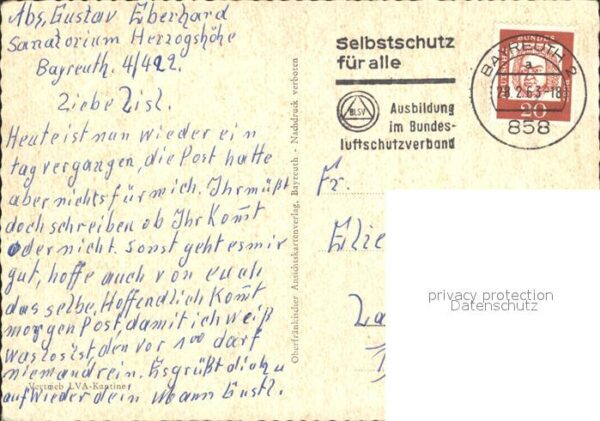 Abs, Gustav Eberhard
Sanatorium Herzogshöhe
Bayreuth. 4/422.
Ziebe Zisl.
Heute ist nun wieder ein
tag vergangen, die Post hatte
aber nichts für mich. Ihr müßt
doch schreiben ob Ihr Komt
oder nicht. Sonst geht es mir
gut, hoffe auch von euch
das selbe. Hoffendlich Komt
morgen Post, damit ich weiß
was los ist, den vor 1⁰⁰ darf
niemand rein. Es grüßt dich zu
auf wieder dein Mann Gustl.
Vertrieb LVA-Kantine
Oberfränkischer Ansichtskartenverlag, Bayreuth - Nachdruck verboten
Selbstschutz
für alle
BLSV
Ausbildung
im Bundes-
luftschutzverband
BAYREUTH 2
a
28.2.63-18
858
DEUTSCHE BUNDESPOST
20
Fr.
Elie
Za
privacy protection
Datenschutz